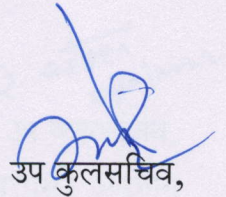 उप कुलसचिव,